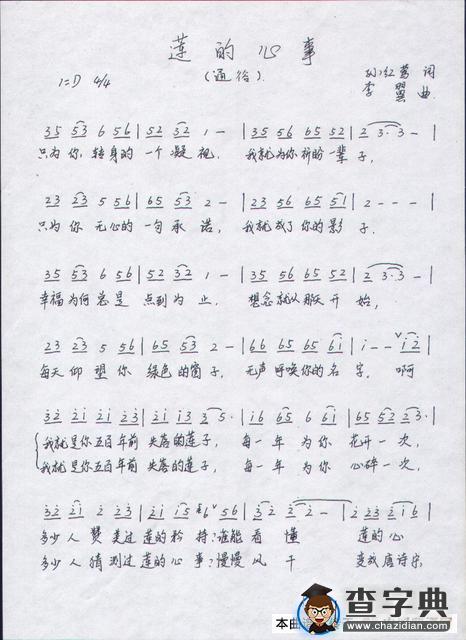 莲的心事
(通俗)
孙红莺 词
李 曌 曲
1=D 4/4
35 53 6 56 | 52 32 1 - | 35 56 65 52 | 2 3·3 - |
只为你,转身的一个凝视, 我就为你祈盼一辈子,
23 23 5 56 | 65 53 2 - | 23 56 65 51 | 2 - - - |
只为你 无心的一句承诺, 我就成了你的影子.
35 53 6 56 | 52 32 1 - | 35 56 65 52 | 2 3·3 - |
幸福为何总是 点到为止, 想念就从那天开始,
23 23 5 56 | 65 53 2 - | 66 65 65 61 | 1 - - 12 |
每天仰望你 绿色的窗子, 无声呼唤你的名字, 啊
32 21 21 23 | 21 13 3 5· | 16 65 6 61 | 65 52 3 - |
我就是你五百年前 失落的莲子, 每一年 为你 花开一次,
我就是你五百年前 失落的莲子, 每一年 为你 心碎一次,
32 21 2 23 | 21 15 6 56 | 32 2 2 - | 2 23 216 |
多少人 赞美过莲的矜持?谁能看 懂 莲的心
多少人 猜测过莲的心 事?慢慢风 干 变成唐诗宋
本由
查字典
www.chazidian.com